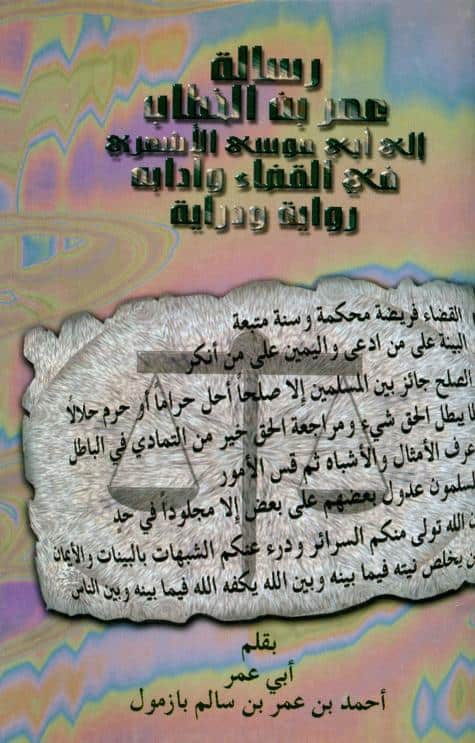 رسالة
عمر بن الخطاب
إلى أبي موسى الأشعري
في القضاء وآدابه
رواية ودراية
القضاء فريضة محكمة وسنة متبعة
البينة على من ادعى واليمين على من أنكر
الصلح جائز بين المسلمين إلا صلحاً أحل حراما أو حرم حلالا
يبطل الحق شيء ومراجعة الحق خير من التمادي في الباطل
عرف الأمثال والأشباه ثم قس الأمور
لمسلمون عدول بعضهم على بعض إلا مجلوداً في حد
الله تولى منكم السرائر ودرء عنكم الشبهات بالبينات والأيمان
يخلص نيته فيما بينه وبين الله يكفه الله فيما بينه وبين الناس
بقلم
أبي عمر
أحمد بن عمر بن سالم بازمول